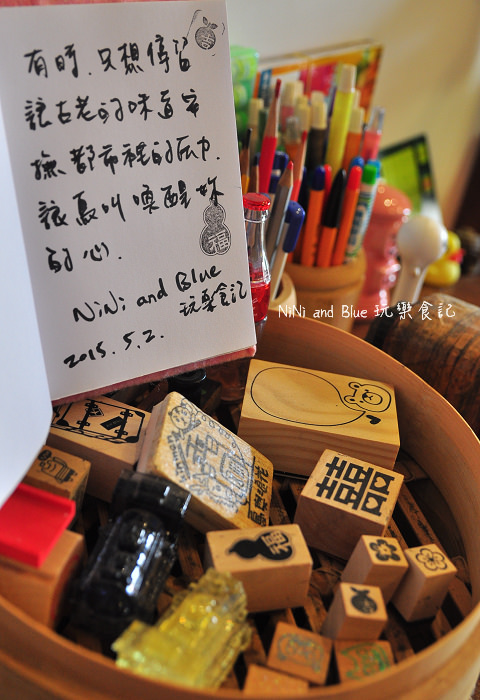 有時、只想停留
讓古老的味道安
撫都市裡的
讓鳥叫喚醒妳
的心.
NiNi and Blue
玩樂食記
2015.5.2.
福
NiNi and Blue 玩樂食記
囍
福